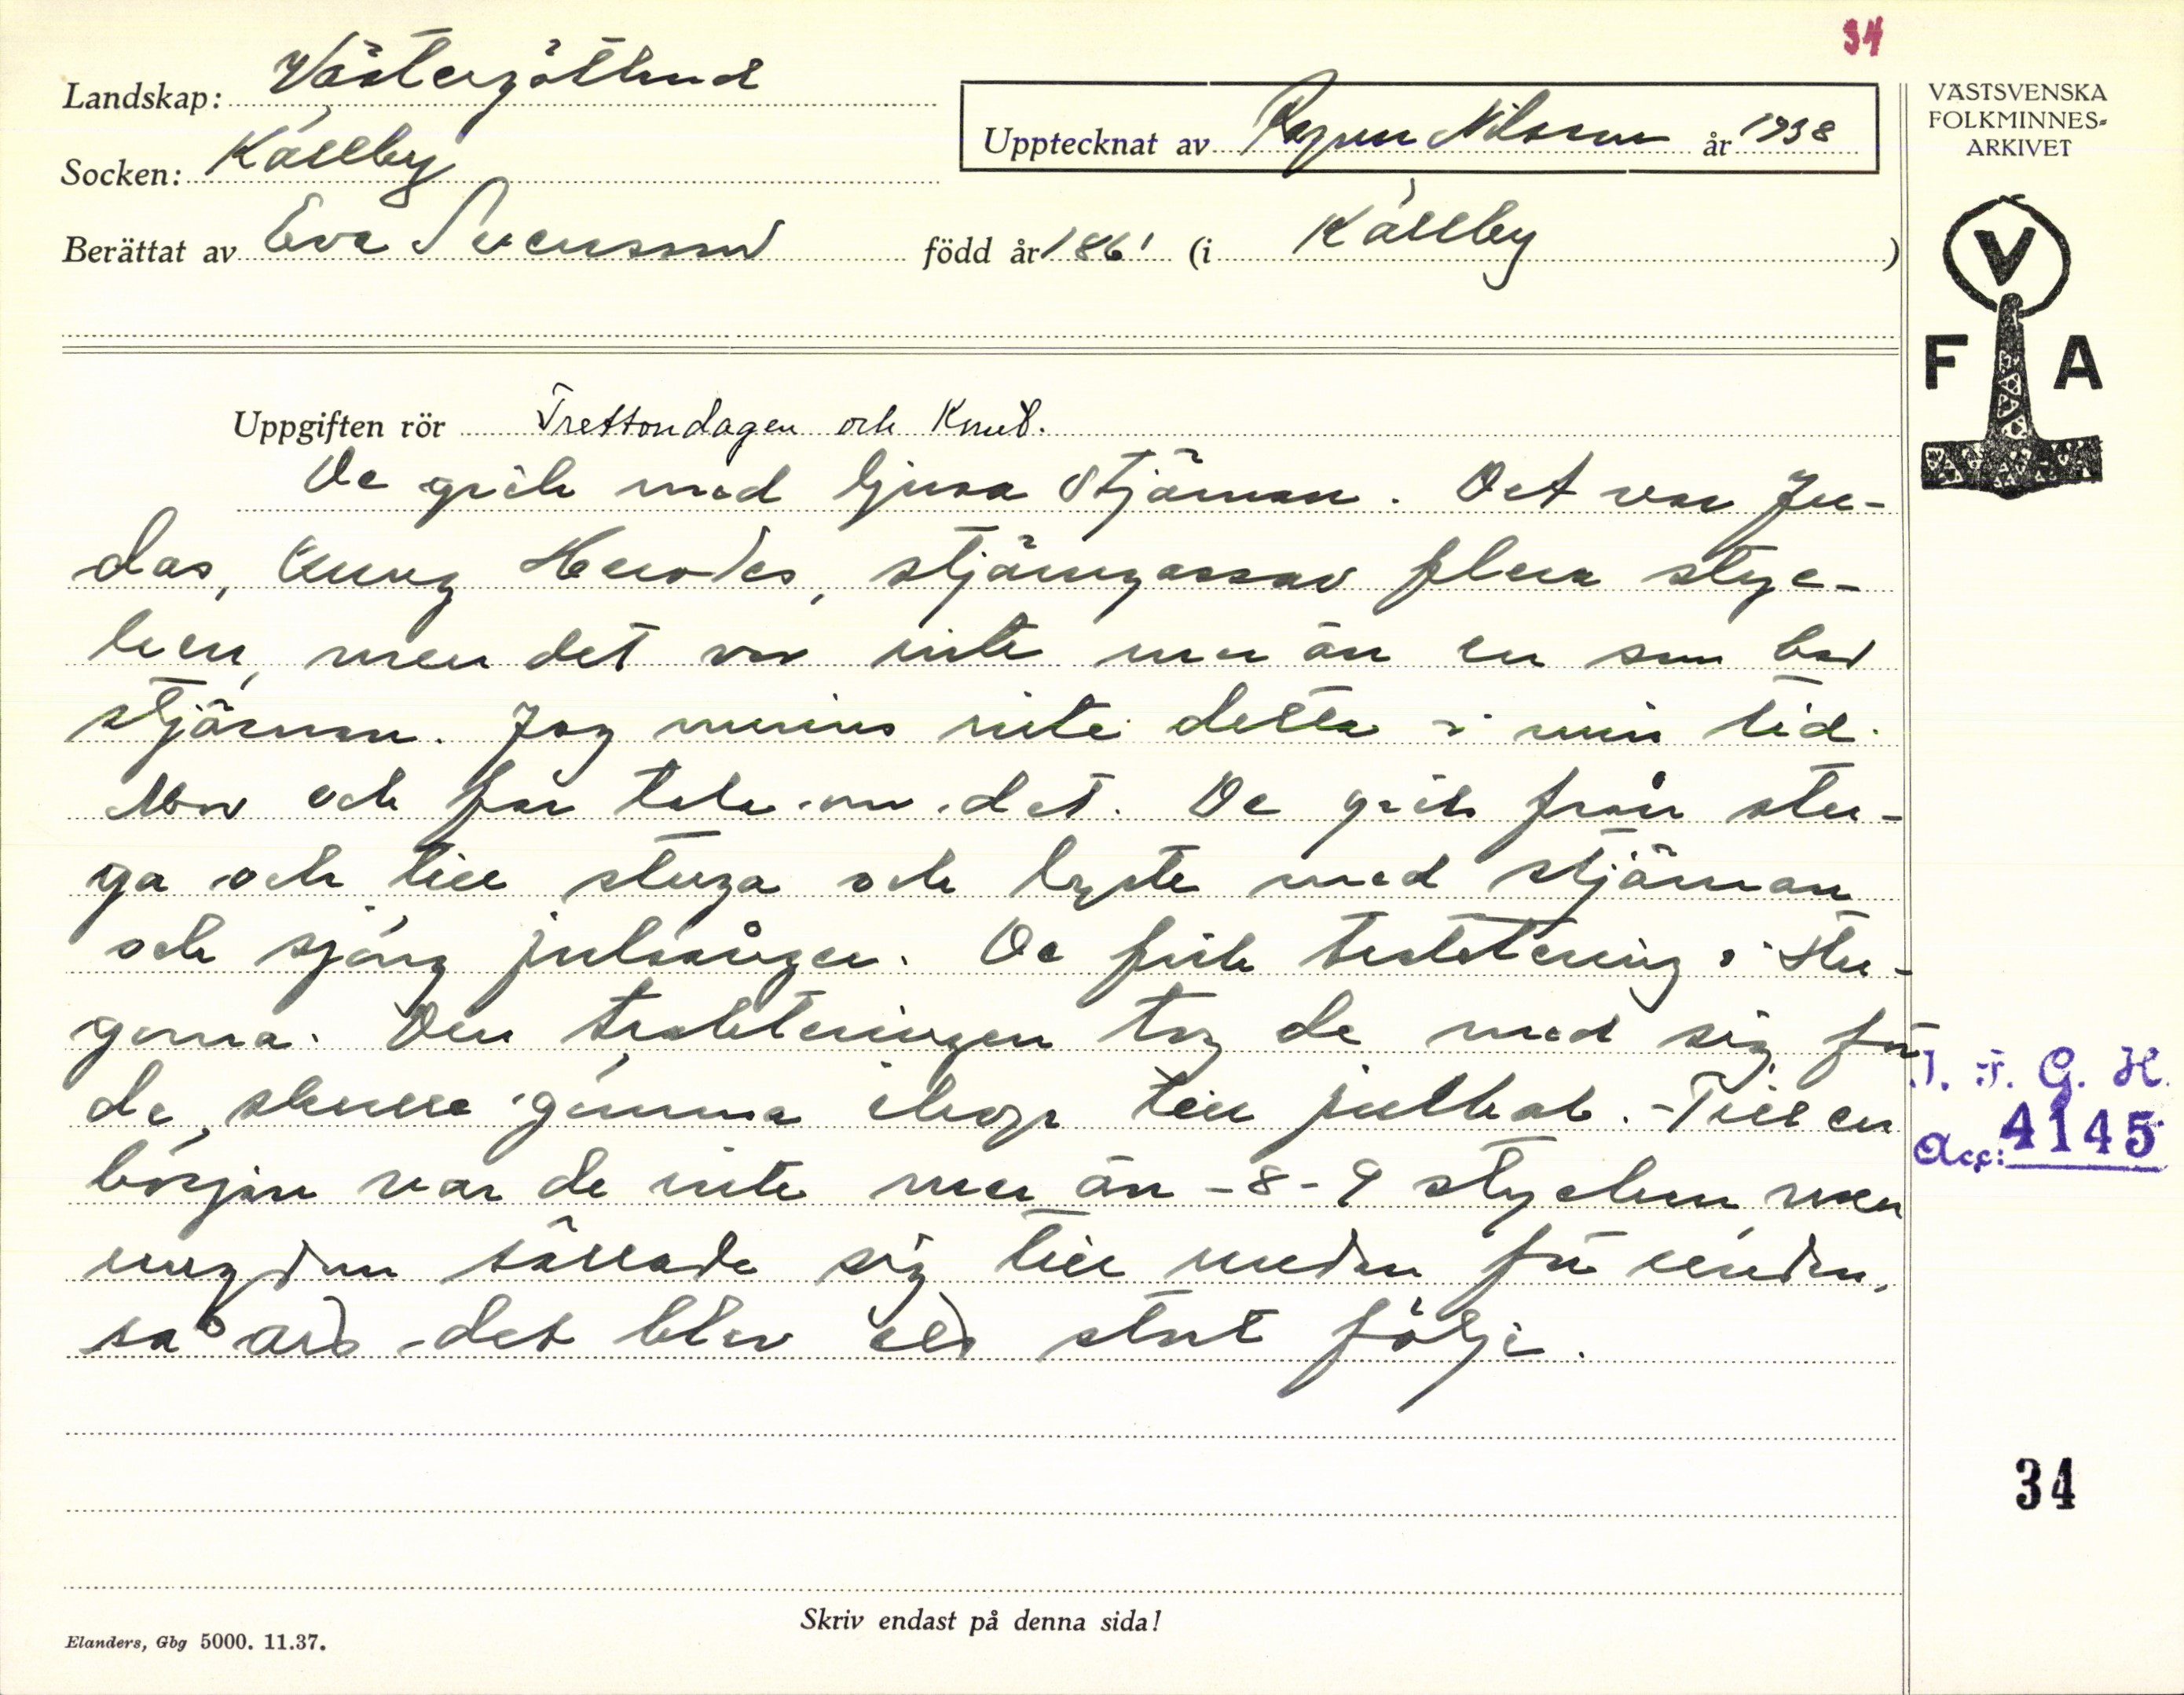 34
Landskap: Västergötland
Socken: Källby
Upptecknat av Ragnar Nilsson år 1938
Berättat av Eva Svensson född år 1861 (i Källby)
VÄSTSVENSKA
FOLKMINNES-
ARKIVET
V
F A
Uppgiften rör Trettondagen och Knut.
De gick med ljusa stjärnan. Det var Ju-
das, Kung Herodes, stjärngossar flera styc-
ken, men det var inte mer än en som bar
stjärnan. Jag minns inte detta i min tid.
Mor och far tala om det. De gick från stu-
ga och till stuga och lyste med stjärnan
och sjöng julsånger. De fick traktering i stu-
gorna. Den trakteringen tog de med sig för
de skulle gömma ihop till julkal. - Till en
början var de inte mer än - 8 - 9 stycken, men
ungdom sällade sig till undan för undan,
så att det blev ett stort följe.
I. F. G. H.
Acc: 4145
34
Skriv endast på denna sida!
Elanders, Gbg 5000. 11.37.